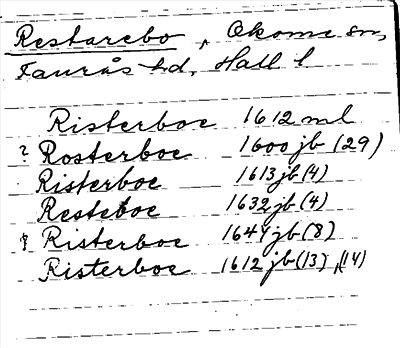 Restarebo, Okome sn,
Faurås hd, Hall l
Risterboe 1612 ml
? Rosterboe 1600 jb (29)
Risterboe 1613 jb (4)
Resteboe 1632 jb (4)
Risterboe 1644 jb (8)
Risterboe 1612 jb (13), (14)